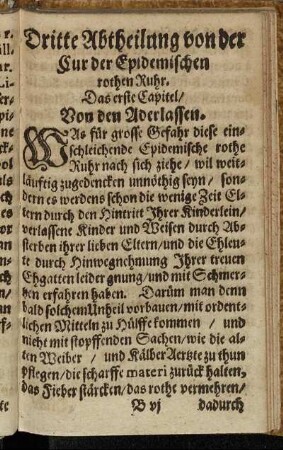 Dritte Abtheilung von der
Cur der Epidemischen
rothen Ruhr.
Das erste Capitel/
Von den Aderlassen.
WAs für grosse Gefahr diese ein-
schleichende Epidemische rothe
Ruhr nach sich ziehe/ wil weit-
läufftig zugedencken unnöthig seyn/ son-
dern es werdens schon die wenige Zeit El-
tern durch den Hintrit Jhrer Kinderlein/
verlassene Kinder und Weisen durch Ab-
sterben ihrer lieben Eltern/ und die Ehleu-
te durch Hinwegnehmung Jhrer treuen
Ehgatten leider gnung/ und mit Schmer-
tzen erfahren haben. Darüm man denn
bald solchem Unheil vorbauen/ mit ordent-
lichen Mitteln zu Hülffe kommen / und
nicht mit stopffenden Sachen/ wie die al-
ten Weiber / und Kälber Aertzte zu thun
pflegen/ die scharffe materi zurück halten,
das Fieber stärcken/ das rothe vermehren/
B vj dadurch